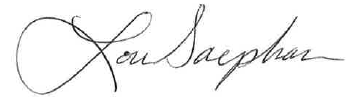 Lou Saephan